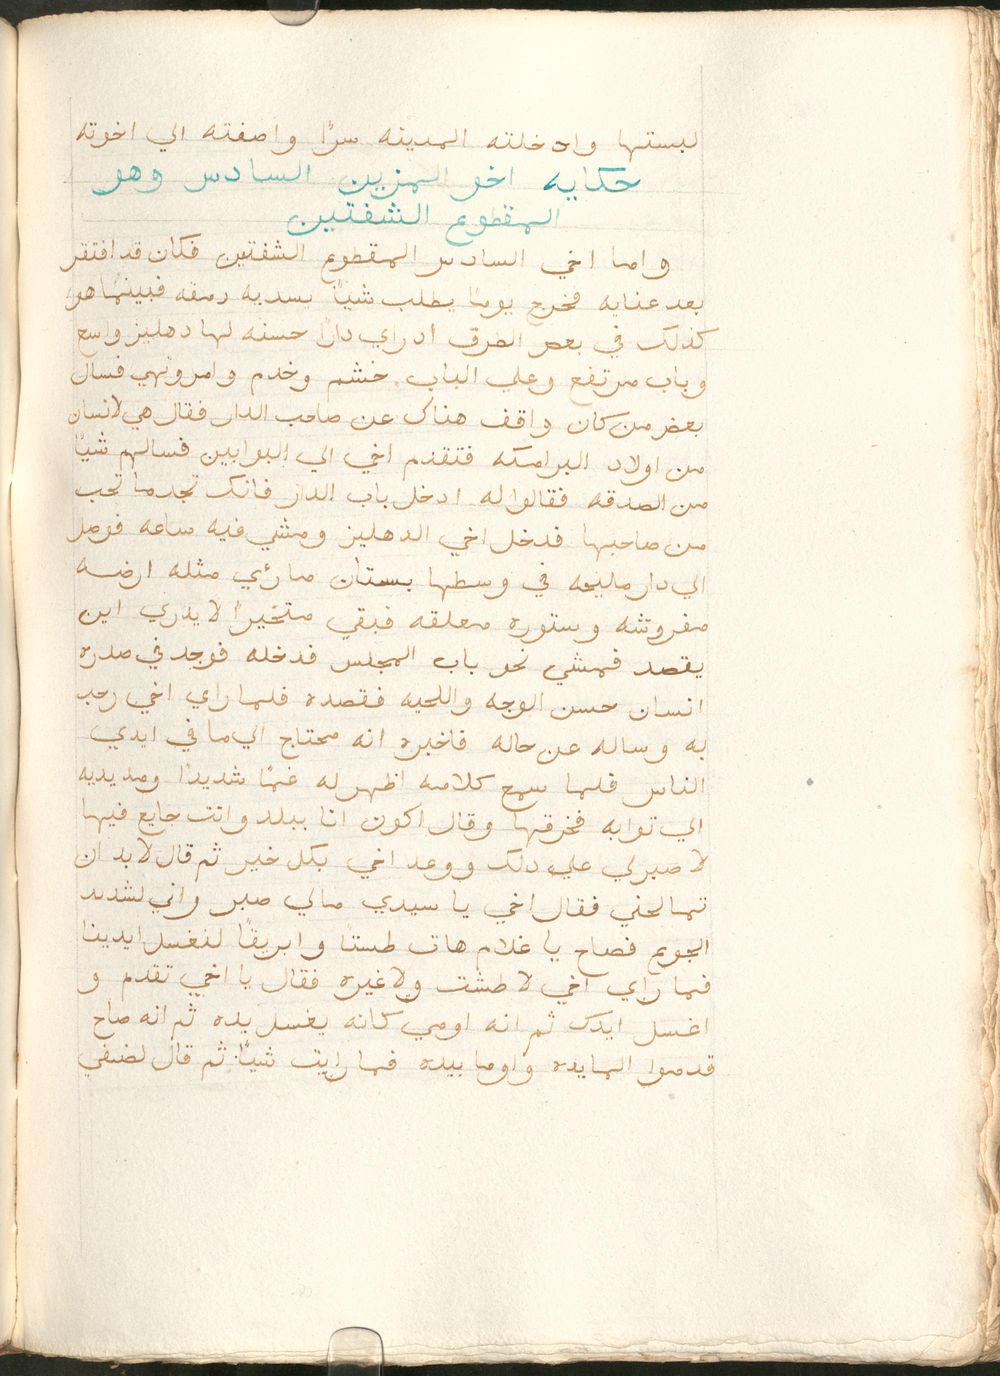 لبستها وادخلته المدينه سرًا واضفته الي اخوته
حكايه اخو المزين السادس وهو
المقطوع الشفتين
واما اخي السادس المقطوع الشفتين فكان قد افتقر
بعد عنايه فخرج يومًا يطلب شيًا يسد به رمقه فبينما هو
كذلك في بعض الطرق اد راي دارًا حسنه لها دهليز واسع
وباب مرتفع وعلي الباب خشم وخدم وامر ونهي فسال
بعض من كان واقف هناك عن صاحب الدار فقال هي لانسان
من اولاد البرامكه فتقدم اخي الي البوابين فسالهم شيًا
من الصدقه فقالوا له ادخل باب الدار فانك تجد ما تحب
من صاحبها فدخل اخي الدهليز ومشي فيه ساعه فوصل
الي دار مليحه في وسطها بستان ما رئي مثله ارضه
مفروشه وستوره معلقه فبقي متحيرًا لا يدري اين
يقصد فمشي نحو باب المجلس فدخله فوجد في صدره
انسان حسن الوجه واللحيه فقصده فلما راي اخي رحب
به وساله عن حاله فاخبره انه محتاج الي ما في ايدي
الناس فلما سمع كلامه اظهر له غمًا شديدًا ومد يديه
الي توابه فخرقها وقال اكون انا ببلد وانت جايع فيها
لا صبر لي علي دلك ووعد اخي بكل خير ثم قال لا بد ان
تمالحني فقال اخي يا سيدي مالي صبر واني لشديد
الجوع فصاح يا غلام هات طستا وابريقًا لنغسل ايدينا
فما راي اخي لا طشت ولا غيره فقال يا اخي تقدم و
اغسل ايدك ثم انه اومي كانه يغسل يده ثم انه صاح
قدموا المايده واوما بيده فما رايت شيًا ثم قال لضيفي